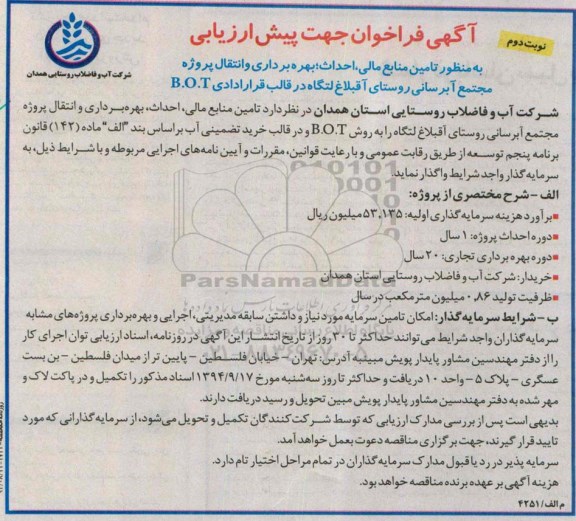 نوبت دوم
آگهی فراخوان جهت پیش ارزیابی
شرکت آب و فاضلاب روستایی همدان
به منظور تامین منابع مالی، احداث؛ بهره برداری و انتقال پروژه
مجتمع آبرسانی روستای آقبلاغ لتگاه در قالب قراردادی B.O.T
شرکت آب و فاضلاب روستایی استان همدان در نظر دارد تامین منابع مالی، احداث، بهره‌برداری و انتقال پروژه
مجتمع آبرسانی روستای آقبلاغ لتگاه را به روش B.O.T و در قالب خرید تضمینی آب براساس بند "الف" ماده (۱۴۲) قانون
برنامه پنجم توسعه از طریق رقابت عمومی و با رعایت قوانین، مقررات و آیین نامه‌های اجرایی مربوطه و با شرایط ذیل، به
سرمایه گذار واجد شرایط واگذار نماید.
الف - شرح مختصری از پروژه:
برآورد هزینه سرمایه گذاری اولیه: ۵۳،۱۳۵ میلیون ریال
دوره احداث پروژه: ۱ سال
دوره بهره برداری تجاری: ۲۰ سال
خریدار: شرکت آب و فاضلاب روستایی استان همدان
ظرفیت تولید ۰،۸۶ میلیون مترمکعب در سال
ParsNamadData
ب - شرایط سرمایه گذار: امکان تامین سرمایه مورد نیاز و داشتن سابقه مدیریتی، اجرایی و بهره‌برداری پروژه‌های مشابه
سرمایه گذاران واجد شرایط می توانند حداکثر تا ۳۰ روز از تاریخ انتشار این آگهی در روزنامه، اسناد ارزیابی توان اجرای کار
را از دفتر مهندسین مشاور پایدار پویش مبین به آدرس: تهران - خیابان فلسطین - پایین تر از میدان فلسطین - بن بست
عسگری - پلاک ۵ - واحد ۱۰ دریافت و حداکثر تا روز سه‌شنبه مورخ ۱۳۹۴/۹/۱۷ اسناد مذکور را تکمیل و در پاکت لاک و
مهر شده به دفتر مهندسین مشاور پایدار پویش مبین تحویل و رسید دریافت دارند.
بدیهی است پس از بررسی مدارک ارزیابی که توسط شرکت کنندگان تکمیل و تحویل می‌شود، از سرمایه گذارانی که مورد
تایید قرار گیرند، جهت برگزاری مناقصه دعوت بعمل خواهد آمد.
سرمایه پذیر در رد یا قبول مدارک سرمایه گذاران در تمام مراحل اختیار تام دارد.
هزینه آگهی بر عهده برنده مناقصه خواهد بود.
م الف/۴۲۵۱